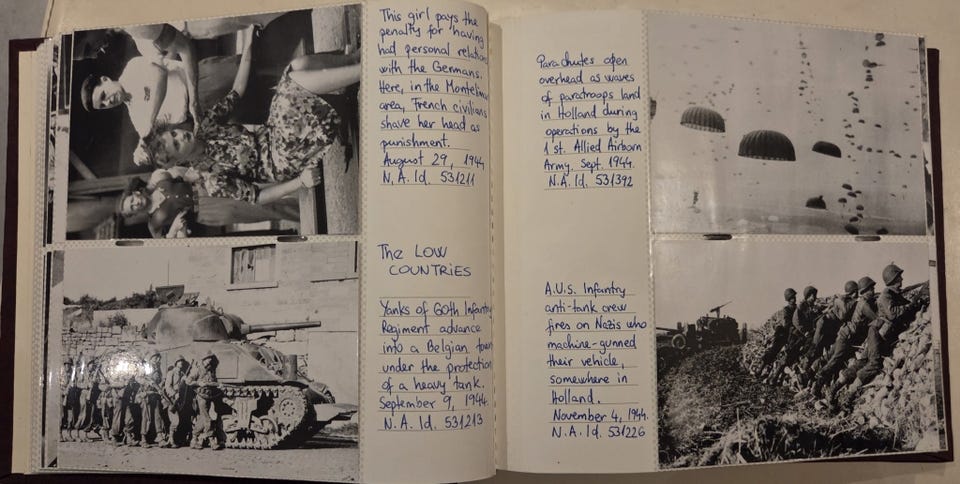 This girl pays the
penalty for having
had personal relations
with the Germans.
Here, in the Montelimar
area, French civilians
shave her head as
punishment.
August 29, 1944
N.A. Id. 531211
The LOW
COUNTRIES
Yanks of 60th Infantry
Regiment advance
into a Belgian town
under the protection
of a heavy tank.
September 9, 1944.
N.A. Id. 531213
Parachutes open
overhead as waves
of paratroops land
in Holland during
operations by the
1st. Allied Airborn
Army. Sept. 1944.
N.A. Id. 531392
A.U.S. Infantry
anti-tank crew
fires on Nazis who
machine-gunned
their vehicle,
somewhere in
Holland.
November 4, 1944.
N.A. Id. 531226